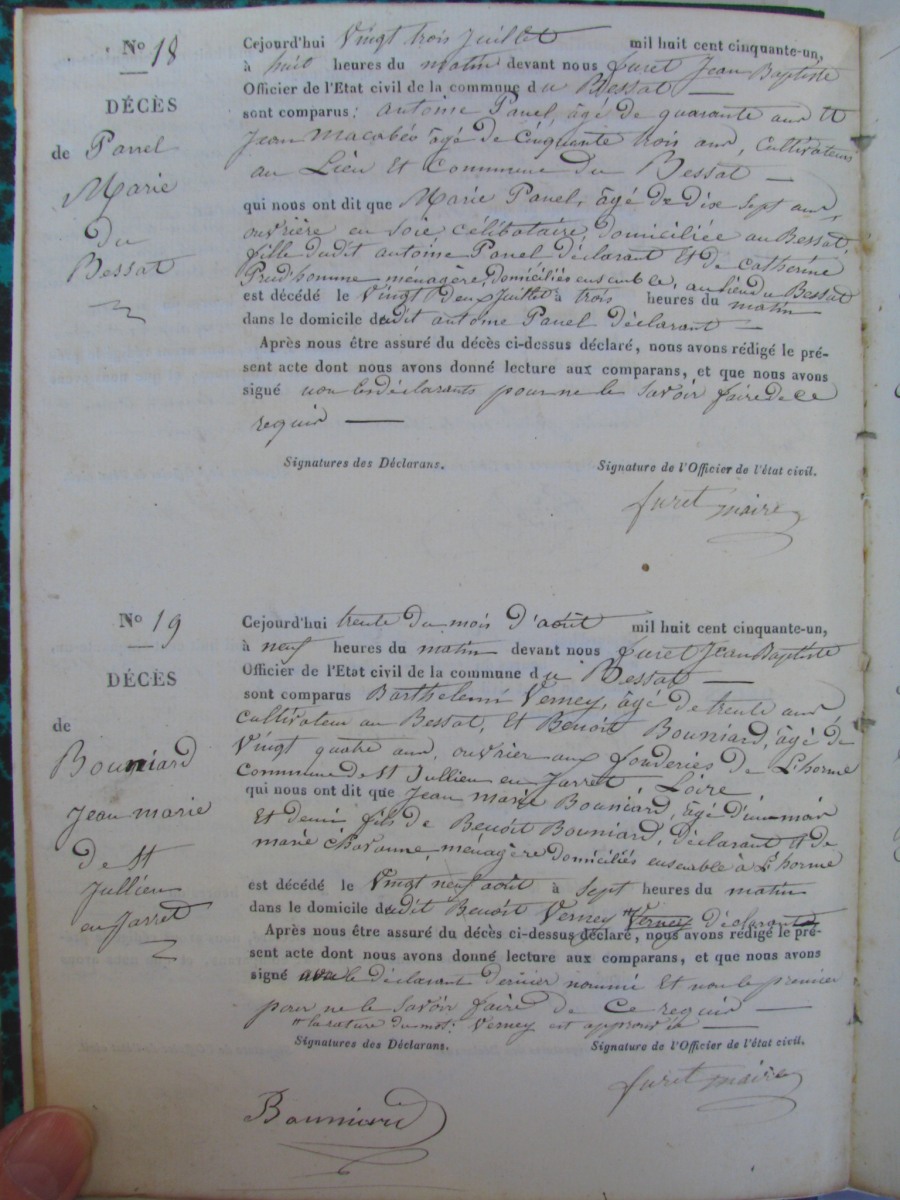 N° 18
DÉCÈS
de Panel
Marie
du
Bessat
Cejourd'hui Vingt trois Juillet mil huit cent cinquante-un,
à huit heures du matin devant nous Furet Jean Baptiste
Officier de l'Etat civil de la commune du Bessat
sont comparus : antoine Panel, âgé de quarante ans et
Jean Macabéo âgé de cinquante trois ans, cultivateurs
au Lieu et Commune du Bessat
qui nous ont dit que Marie Panel, âgé de dix sept ans,
ouvrière en soie célibataire domiciliée au Bessat,
fille dudit antoine Panel déclarant et de catherine
Prud'homme ménagère, domiciliés ensemble, au lieu du Bessat
est décédé le Vingt deux Juillet à trois heures du matin
dans le domicile dudit antoine Panel déclarant
Après nous être assuré du décès ci-dessus déclaré, nous avons rédigé le pré-
sent acte dont nous avons donné lecture aux comparans, et que nous avons
signé non les déclarants pour ne le savoir faire de ce
requis
Signatures des Déclarans. Signature de l'Officier de l'état civil.
furet maire
N° 19
DÉCÈS
de
Bouniard
Jean marie
de St
Jullien
en Jarret
Cejourd'hui trente du mois d'août mil huit cent cinquante-un,
à neuf heures du matin devant nous Furet Jean Baptiste
Officier de l'Etat civil de la commune du Bessat
sont comparus Barthelemi Verney, âgé de trente ans
cultivateur au Bessat, et Benoit Bouniard, âgé de
Vingt quatre ans, ouvrier aux fonderies de L'horme
Commune de St Jullien en Jarret, Loire
qui nous ont dit que Jean marie Bouniard, âgé d'un mois
et demi fils de Benoit Bouniard, déclarant et de
marie ménagère domiciliés ensemble à L'horme
est décédé le Vingt neuf août à sept heures du matin
dans le domicile dudit Benoit Verney Verney déclarant
Après nous être assuré du décès ci-dessus déclaré, nous avons rédigé le pré-
sent acte dont nous avons donné lecture aux comparans, et que nous avons
signé avec le déclarant dernier nommé et non le premier
pour ne le savoir faire de ce requis
la rature du mot : Verney est approuvée
Signatures des Déclarans. Signature de l'Officier de l'état civil.
furet maire
Bouniard